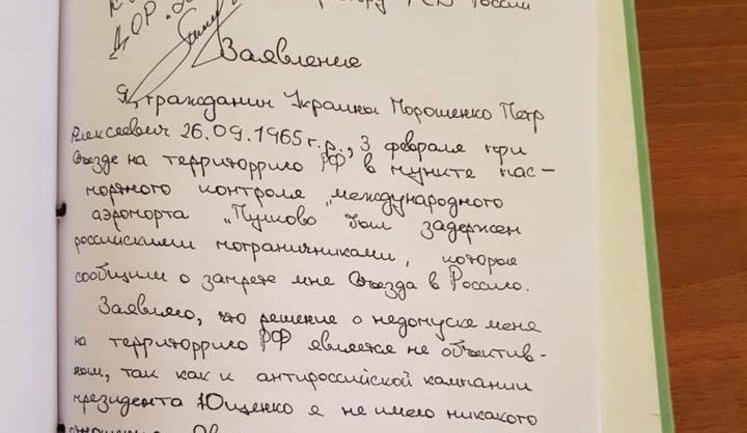 ФСБ России
Заявление
Я, гражданин Украины Порошенко Петр
Алексеевич 26.09.1965 г.р., 3 февраля при
въезде на территоррию РФ в пункте пас-
портного контроля „международного
аэропорта „Пулково был задержен
российскими пограничниками, которые
сообщили о запрете мне въезда в Россию.
Заявляю, что решение о недопуске меня
на территоррию РФ является не объектив-
ным, так как к антироссийской кампании
президента Ющенко я не имею никакого